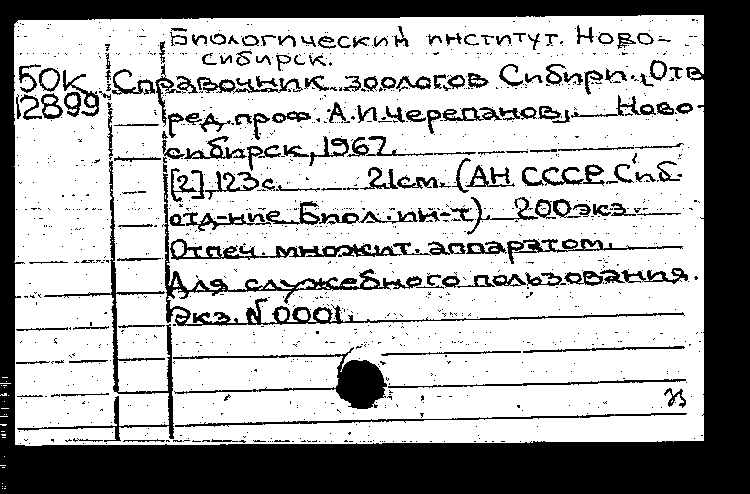 Биологический институт. Ново-
сибирск.
50К Справочник зоологов Сибири. [Отв
12899 ред. проф. А.И.Черепанов]. Ново-
сибирск, 1967.
[2], 123 с. 21см. (АН СССР. Сиб.
отд-ние. Биол. ин-т). 200экз.
Отпеч. множит. аппаратом.
Для служебного пользования.
Экз. № 0001.